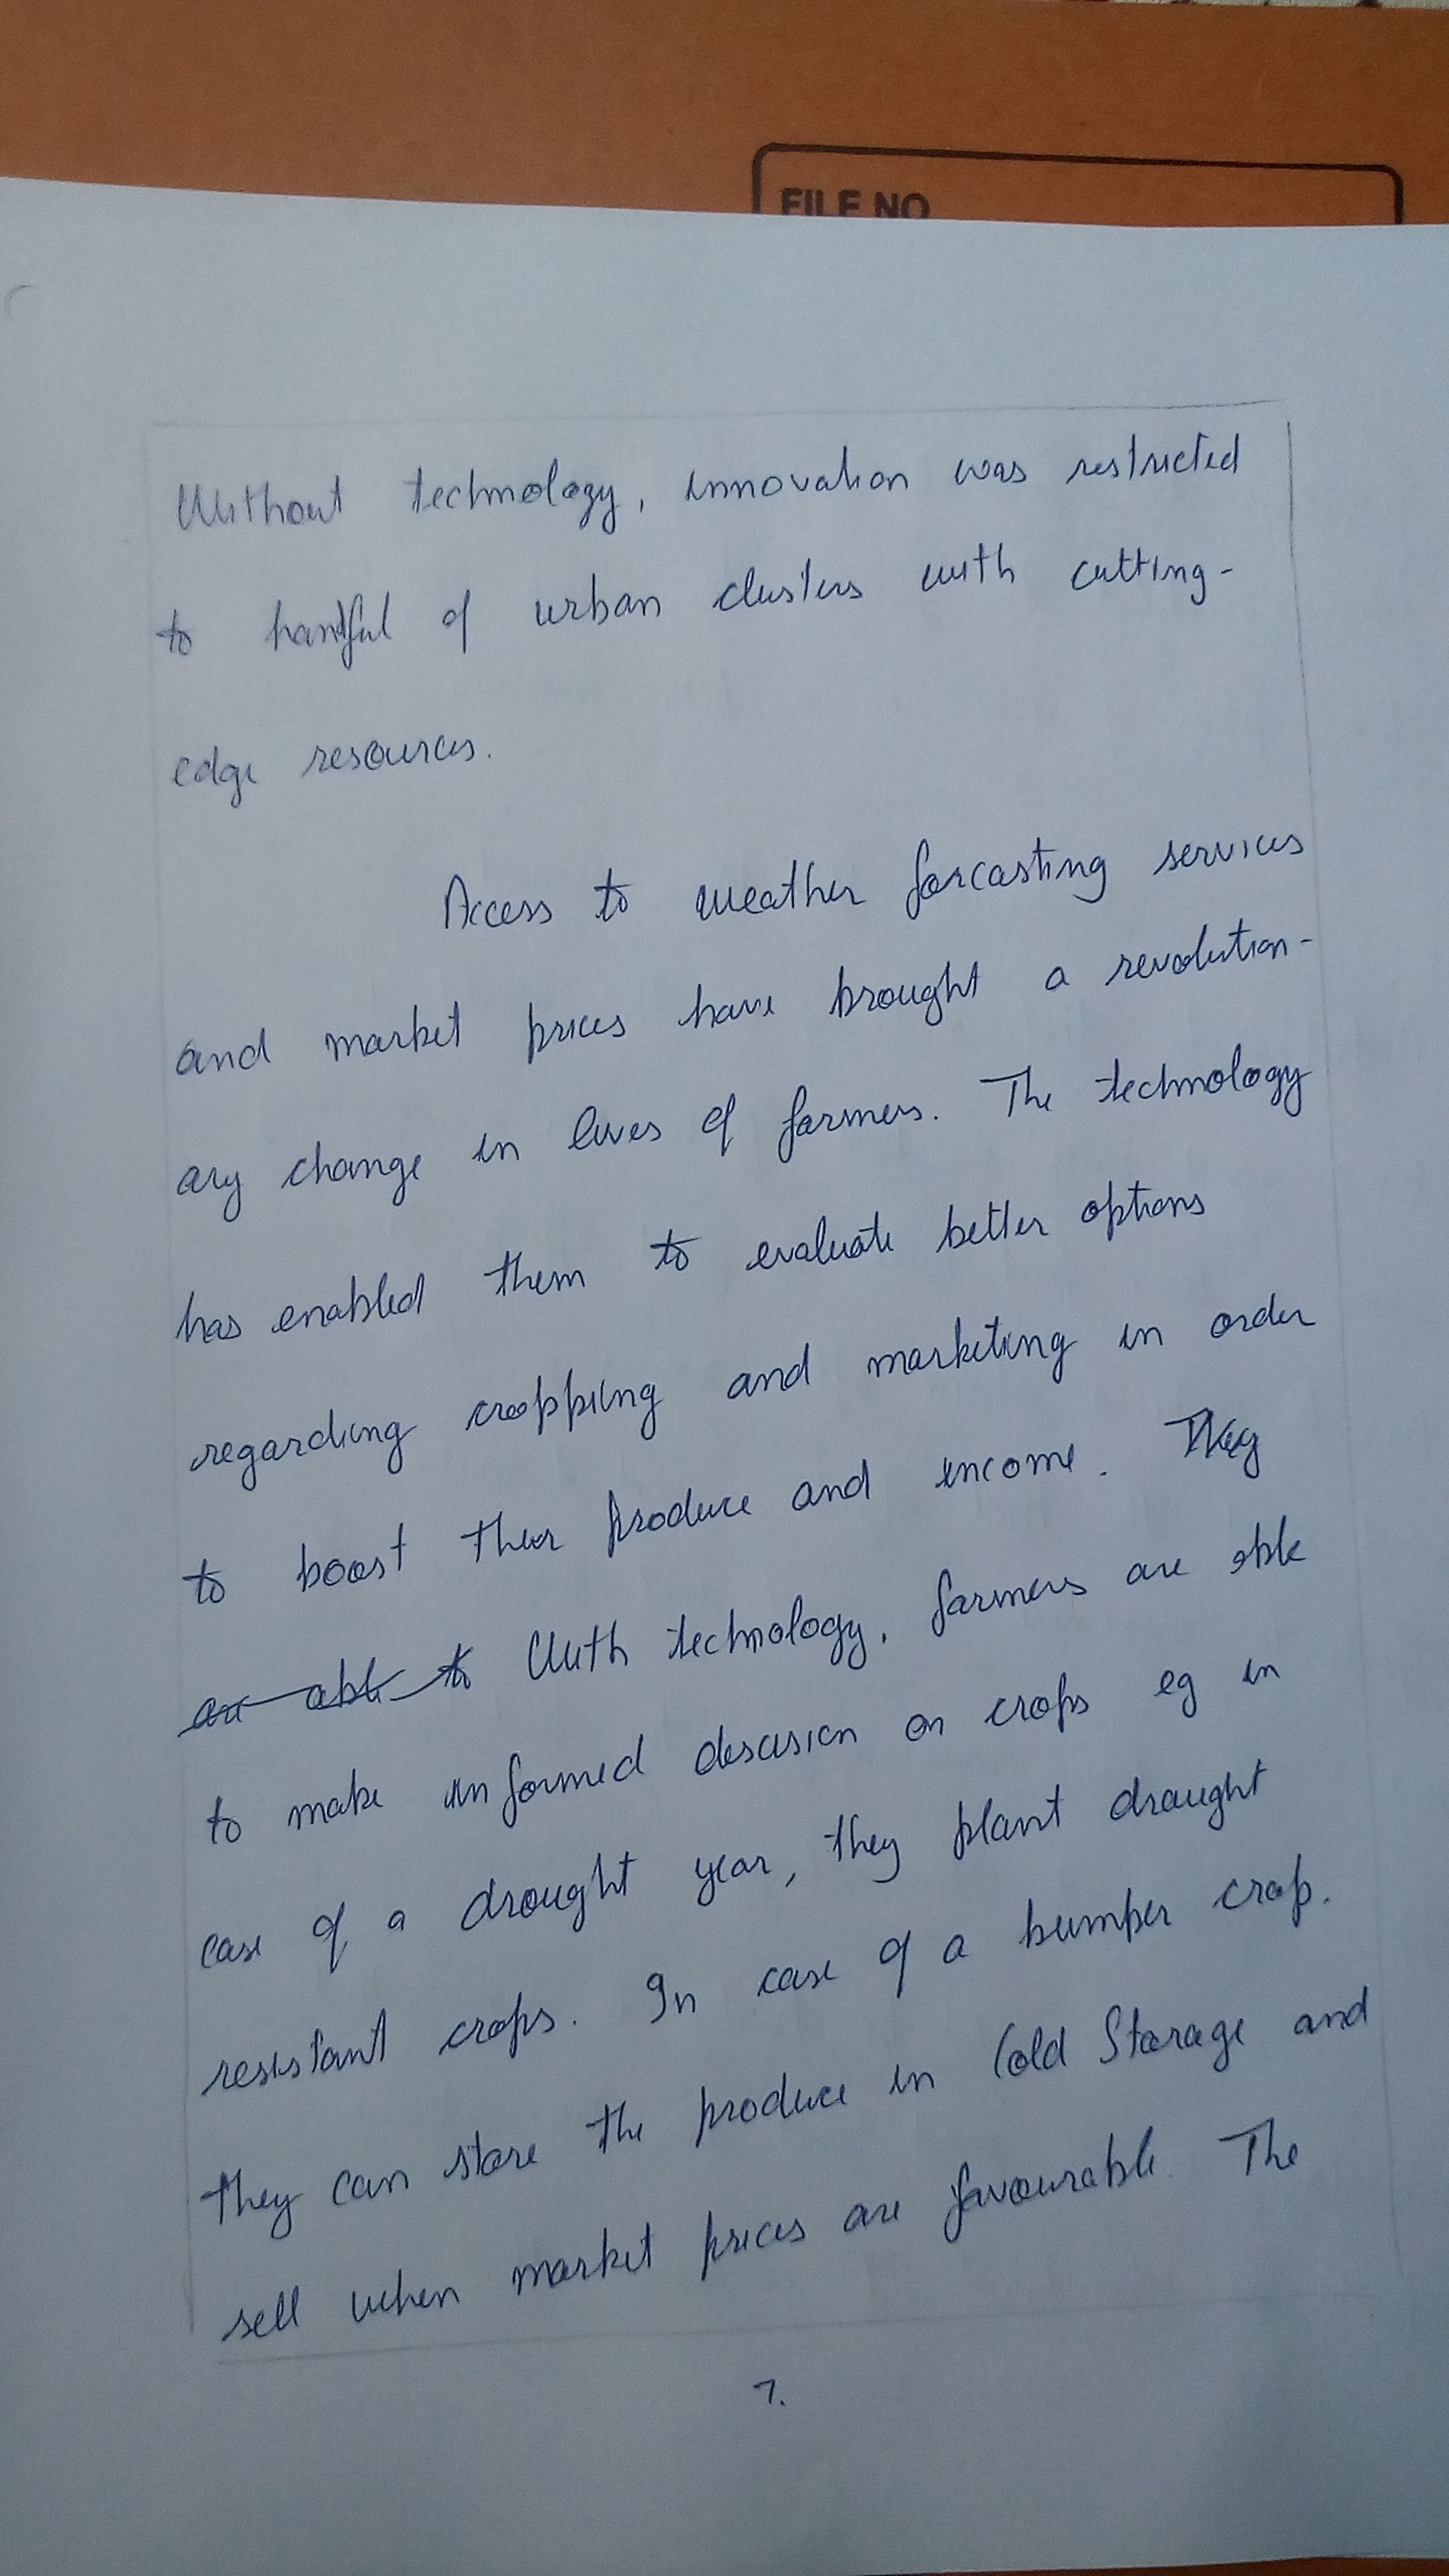 FILE NO
Without technology, innovation was restricted
to handful of urban clusters with cutting-
edge resources.
Access to weather forcasting services
and market prices have brought a revolution-
ary change in lives of farmers. The technology
has enabled them to evaluate better options
regarding cropping and marketing in order
to boost their produce and income. They
are able to With technology, farmers are able
to make informed descision on crops eg in
case of a drought year, they plant draught
resistant crops. In case of a bumper crop.
they can store the produce in Cold Storage and
sell when market prices are favourable. The
7.